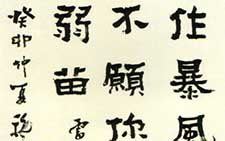 作暴風
不願你
弱苗
雷
癸卯仲夏